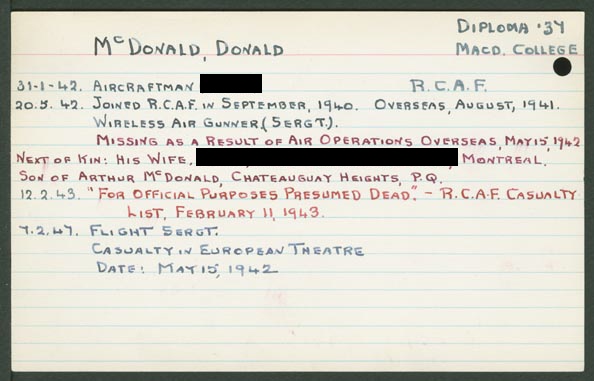 DIPLOMA '37
McDONALD, DONALD MACD. COLLEGE
31-1-42. AIRCRAFTMAN R.C.A.F.
20.5.42. JOINED R.C.A.F. IN SEPTEMBER, 1940. OVERSEAS, AUGUST, 1941.
WIRELESS AIR GUNNER (SERGT.).
MISSING AS A RESULT OF AIR OPERATIONS OVERSEAS, MAY 15, 1942
NEXT OF KIN: HIS WIFE, MONTREAL.
SON OF ARTHUR McDONALD, CHATEAUGUAY HEIGHTS, P.Q.
12.2.43. "FOR OFFICIAL PURPOSES PRESUMED DEAD". - R.C.A.F. CASUALTY
LIST, FEBRUARY 11, 1943.
7.2.47. FLIGHT SERGT.
CASUALTY IN EUROPEAN THEATRE
DATE: MAY 15, 1942